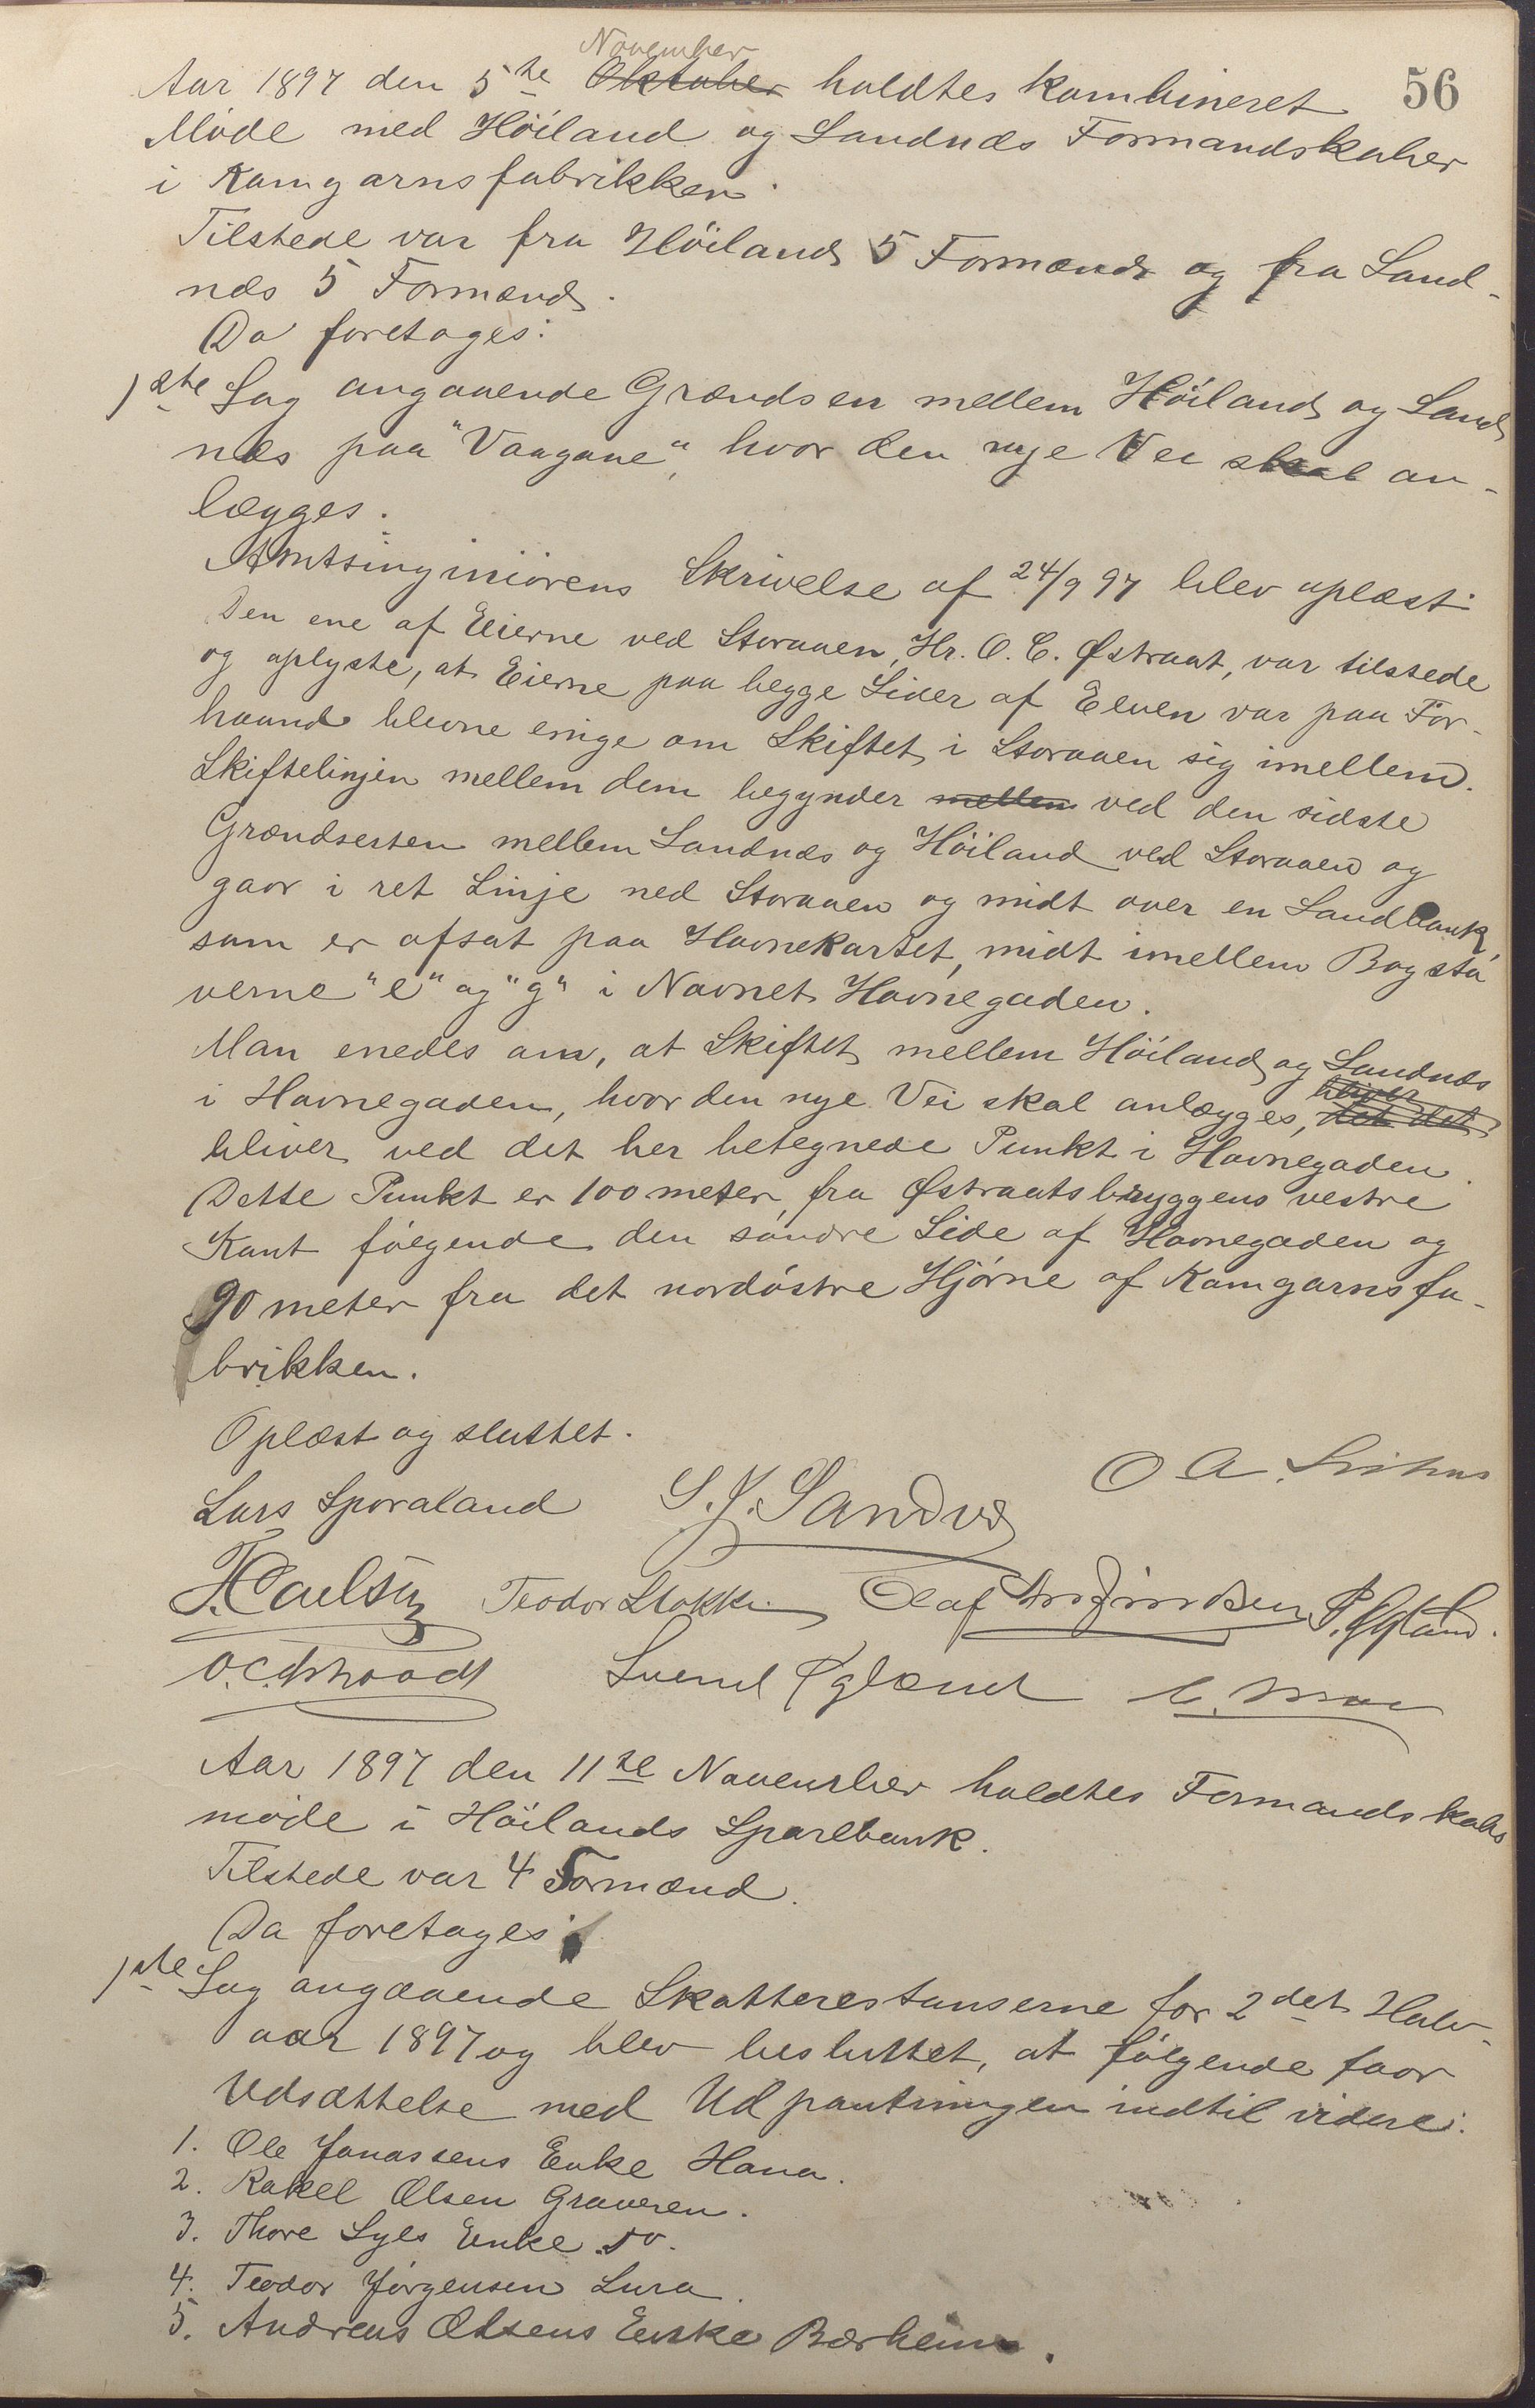 56
November
Aar 1897 den 5te Oktober holdtes kombineret
Møde med Höiland og Sandnæs Formandskaber
i Kamgarnsfabrikken.
Tilstede var fra Höiland 5 Formænd og fra Sand-
næs 5 Formænd.
Da foretoges:
1ste Sag angaaende Grændsen mellem Höiland og Sand
næs paa "Vaagane", hvor den nye Vei skal an-
lægges.
Amtsinginiörens Skrivelse af 24/9 97 blev oplæst.
Den ene af Eierne ved Storaaen, Hr. O. C. Østraat, var tilstede
og oplyste, at Eierne paa begge Sider af Elven var paa For-
haand blevne enige om Skiftet i Storaaen sig imellem.
Skiftelinjen mellem dem begynder mellem ved den sidste
Grændsesten mellem Sandnæs og Höiland ved Storaaen og
gaar i ret Linje ned Storaaen og midt over en Sandbank,
som er afsat paa Havnekartet, midt imellem Bogsta
verne "e" og "g" i Navnet Havnegaden.
Man enedes om, at Skiftet mellem Höiland og Sandnæs
i Havnegaden, hvor den nye Vei skal anlægges, det det
bliver
bliver ved det her betegnede Punkt i Havnegaden.
Dette Punkt er 100 meter fra Østraatsbryggens vestre
Kant følgende den söndre Side af Havnegaden og
90 meter fra det nordöstre Hjörne af Kamgarnsfa-
brikken.
Oplæst og sluttet.
Lars Sporaland S. J. Sandve O A
Teodor Stokke Olaf P.
O. C. Svend
Aar 1897 den 11te November holdtes Formandskabs
möde i Höilands Sparebank.
Tilstede var 4 Formænd.
Da foretoges:
1ste Sag angaaende Skatterestanserne for 2det Halv-
aar 1897 og blev besluttet, at fölgende faar
Udsættelse med Udpantningen indtil videre:
1. Ole Jonassens Enke Hana.
2. Rakel Olsen Graveren.
3. Thore Lyes Enke do.
4. Teodor Jörgensen Lura.
5. Andreas Olsens Enke Bærheim.